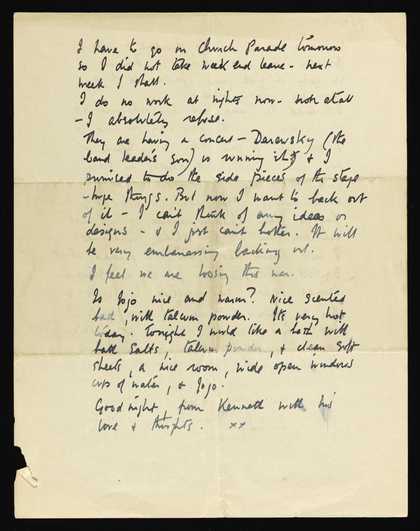 I have to go on Church Parade tomorrow
so I did not take week end leave - next
week I shall.
I do no work at nights now - not at all
- I absolutely refuse.
They are having a concert - Darewsky (the
band leaders son) is running it & I
promised to do the side pieces of the stage
- huge things. But now I want to back out
of it - I can't think of any ideas or
designs - & I just can't bother. It will
be very embarrassing backing out.
I feel we are loosing this war.
Is Jojo nice and warm? Nice scented
bed, with talcum powder. Its very hot
today. Tonight I would take a bath with
bath salts, talcum powder, & clean soft
sheets, a nice room, wide open windows
cups of water, & Jojo.
Goodnight, from Kenneth with his
love & thoughts. xx